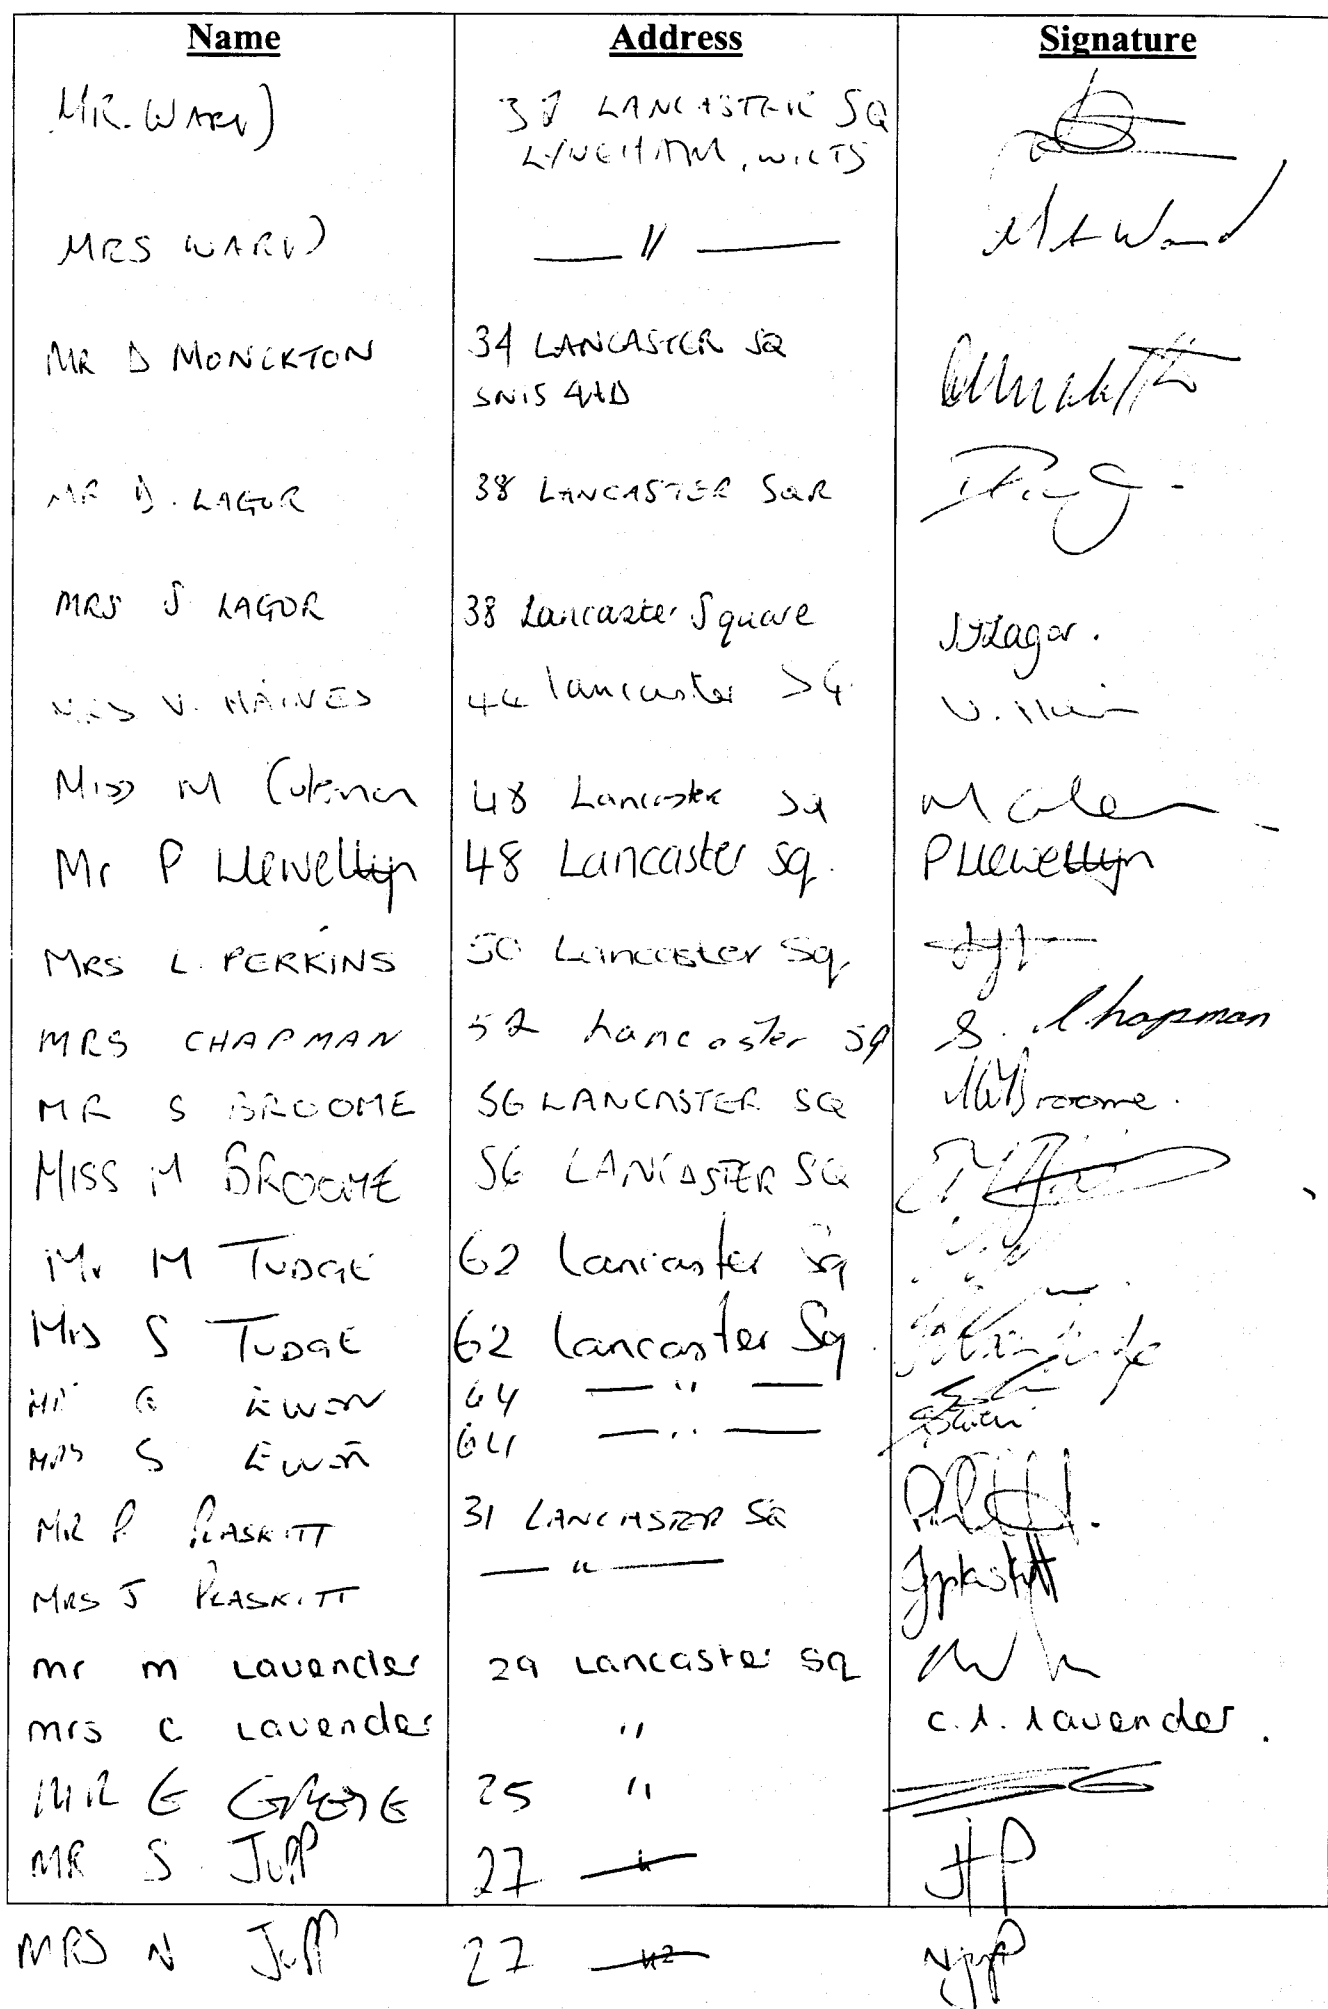 Name Address Signature
MR. WARD 37 LANCASTER SQ
LYNEHAM, WILTS
MRS WARD — 〃 — Ward
MR D MONCKTON 34 LANCASTER SQ
SN15 4AD
MR D. LAGOR 38 LANCASTER SQR
MRS S LAGOR 38 Lancaster Square Lagor.
MRS V. HAINES 44 lancaster SQ. V.
Miss M Coleman 48 Lancaster Sq M
Mr P Llewellyn 48 Lancaster Sq. P Llewellyn
MRS L. PERKINS 50 Lancaster Sq
MRS CHAPMAN 52 Lancaster SQ S. Chapman
MR S BROOME 56 LANCASTER SQ Broome.
MISS M BROOME 56 LANCASTER SQ
Mr M TUDGE 62 Lancaster Sq
Mrs S TUDGE 62 Lancaster Sq.
MR G EWEN 64 — 〃 —
MRS S EWEN 64 — 〃 —
MR P PLASKITT 31 LANCASTER SQ
MRS J PLASKITT — 〃 — Jplaskitt
mr m Lavender 29 Lancaster Sq
mrs c Lavender 〃 c.l. lavender.
MR G 25 〃
MR S JUPP 27 — 〃 —
MRS N JUPP 27 — 〃 —